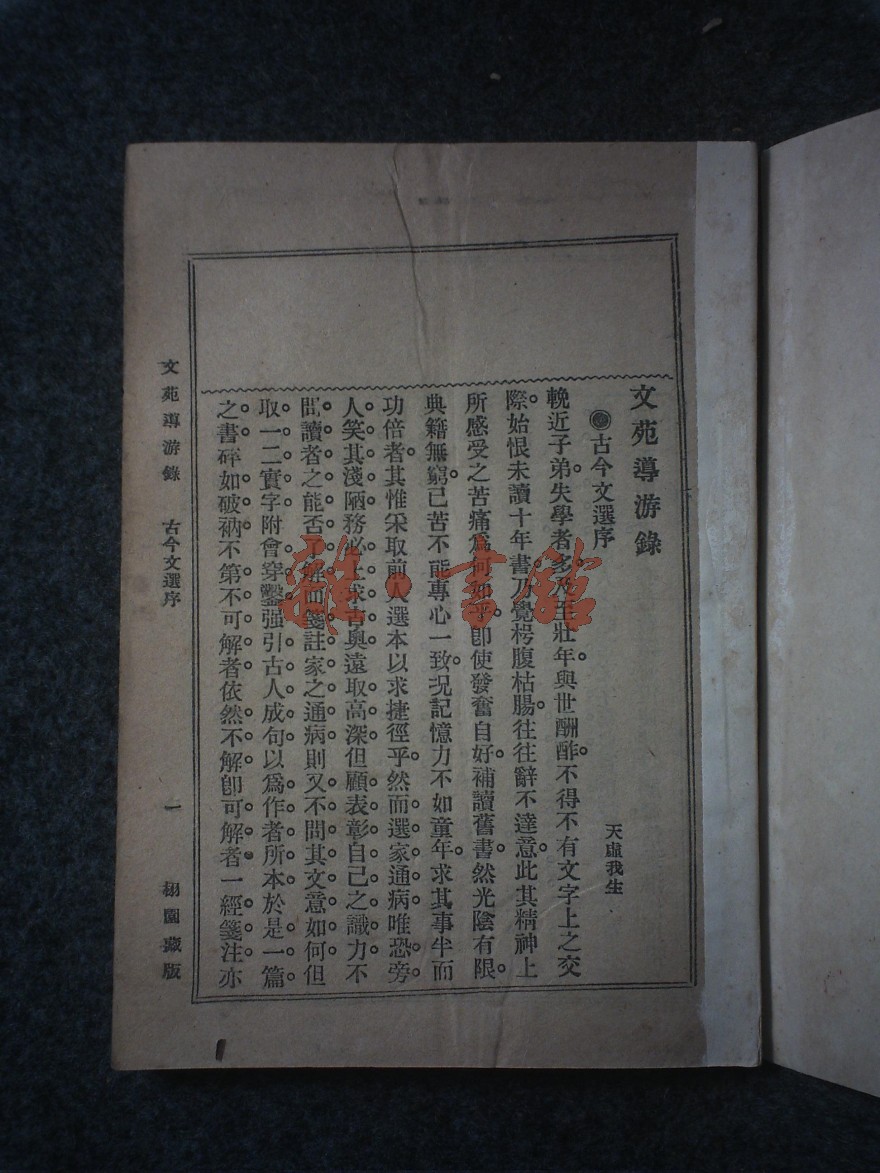 文苑導游錄
●古今文選序
天虛我生
輓近子弟失學者多。及至壯年與世酬酢。不得不有文字上之交
際。始恨未讀十年書。乃覺枵腹枯腸。往往辭不達意。此其精神上
所感受之苦痛爲何如乎。卽使發奮自好。補讀舊書。然光陰有限。
典籍無窮。已苦不能專心一致。况記憶力不如童年。求其事半而
功倍者。其惟采取前人選本以求捷徑乎。然而選家通病。唯恐旁
人笑其淺陋。務必上求古奧。遠取高深。但顧表彰自己之識力。不
問讀者之能否了解。而箋註家之通病。則又不問其文意如何。但
取一二實字。附會穿鑿。强引古人成句。以爲作者所本。於是一篇
之書。碎如破衲。不第不可解者依然不解。卽可解者。一經箋注。亦
文苑導游錄 古今文選序 一 栩園藏版
雜·書館